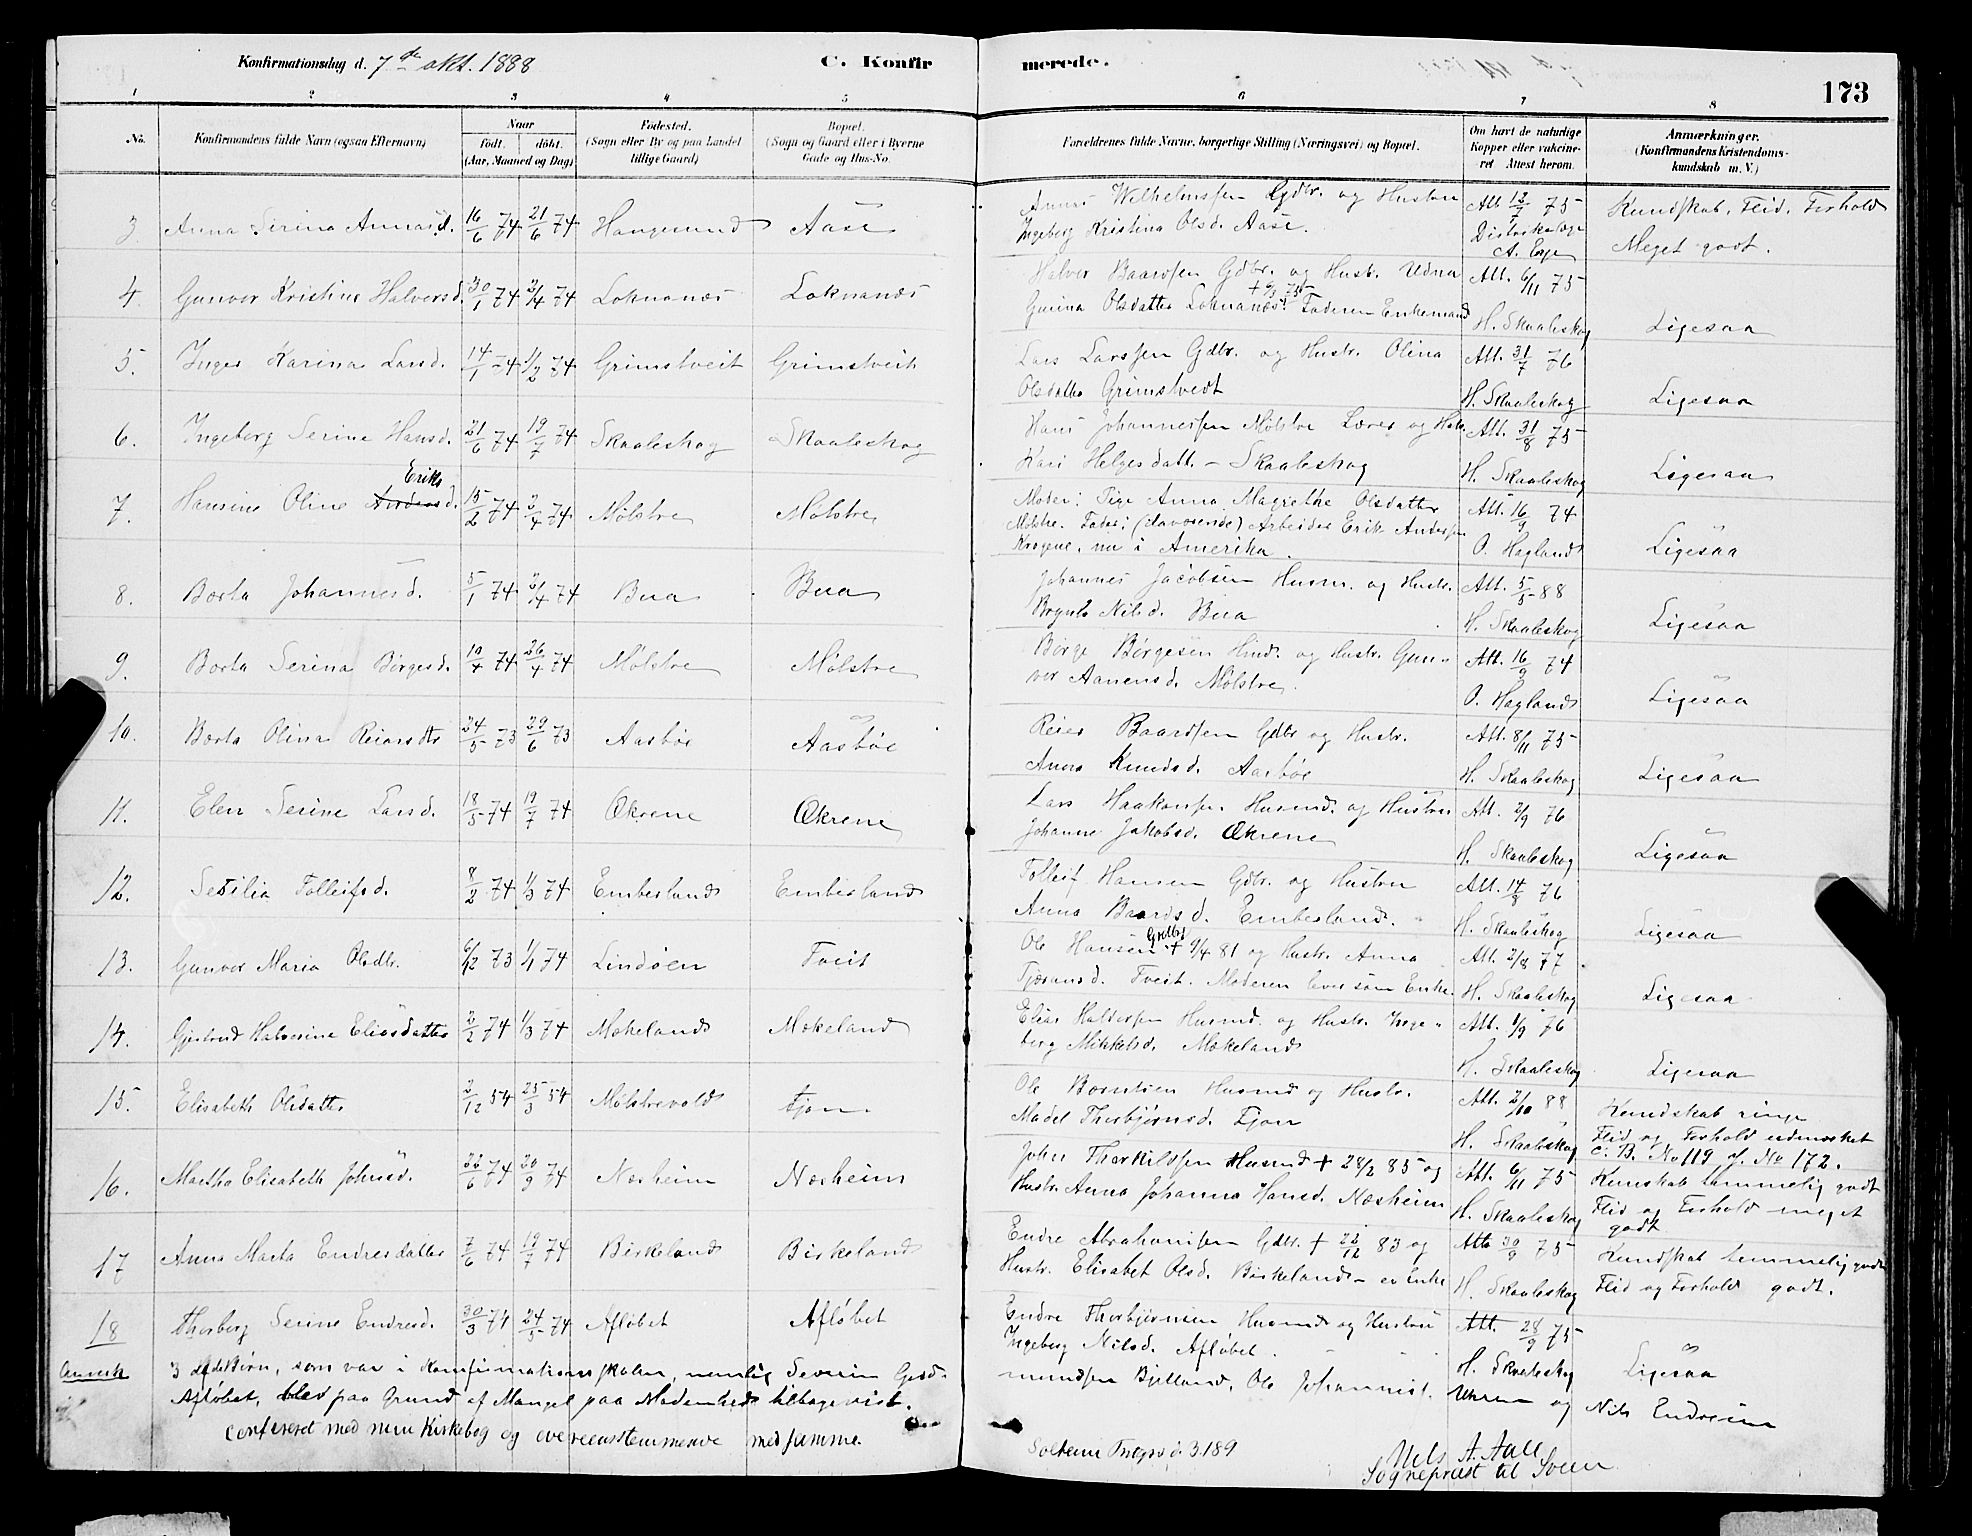 Konfirmationsdag d. 7de okt. 1888 C. Konfir merede. 173
1 2 3 4 5 6 7 8
No. Konfirmandens fulde Navn (ogsaa Efternavn) Naar født. døbt. (Aar, Maaned og Dag) Fødested. (Sogn eller By og paa Landet tillige Gaard) Bopæl. (Sogn og Gaard eller i Byerne Gade og Hus-No. Forældrenes fulde Navne, borgerlige Stilling (Næringsvei) og Bopæl. Om havt de naturlige Kopper eller vakcineret Attest herom. Anmærkninger. (Konfirmandens Kristendomskundskab m. V.)
3 Anna Serina 16/6 74 21/6 74 Haugesund Aase Wilhelmsen Gdbr. og Hustru Att. 12/7 75 Kundskab, Flid, Forhold
Ingeborg Kristina Olsd. Aase. Meget godt.
4 Gunvor Kristine Halversd. 30/1 74 2/4 74 Loknanæs Loknanæs Halvor Baardsen Gdbr. og Hustr. Udna Att. 6/11 75
Gurina Olsdatter Loknanæs. Faderen Enkemand H. Skaaleskog Ligesaa
5. Inger Karina Larsd. 14/1 74 1/2 74 Grimstveit Grimstveit Lars Larssen Gdbr. og Hustr. Olina Att. 31/7 76
Olsdatter Grimstvedt H. Skaaleskog Ligesaa
6. Ingeborg Serine Hansd. 21/6 74 19/7 74 Skaaleskog Skaaleskog Hans Johannessen Mølstre Lærer og Att. 31/8 75
Kari Helgesdatt. - Skaaleskog H. Skaaleskog Ligesaa
7. Hansine Oline Eriks d. 15/2 74 3/4 74 Mølstre Mølstre Moder: Pige Anna Magrethe Olsdatter Att. 16/9 74
Mølstre. Fader: (daværende) Arbeider Erik Andersen
Krogene, nu i Amerika. O. Hagland Ligesaa
8. Berta Johannesd. 5/1 74 2/4 74 Bua Bua Johannes Jacobsen Husm. og Hustr. Att. 5/5 88
Nilsd. Bua H. Skaaleskog Ligesaa
9. Berta Serina Børgesd. 10/4 74 26/4 74 Mølstre Mølstre Børge Børgesen Hmd. og Hustr. Gun- Att. 16/9 74
vor Aanensd. Mølstre. O. Hagland Ligesaa
10. Berta Olina 24/5 73 29/6 73 Aasbøe Aasbøe Reier Baardsen Gdbr og Hustr. Att. 8/11 75
Anna Knudsd. Aasbøe H. Skaaleskog Ligesaa
11. Elen Serine Larsd. 18/5 74 19/7 74 Økrene Økrene Lars Haakonsen Husmd. og Hustru Att. 2/9 76
Johanne Jakobsd. Økrene H. Skaaleskog Ligesaa
12. Sesilia Tolleifsd. 8/2 74 1/3 74 Emberland Emberland Tolleif Hansen Gdbr. og Hustru Att. 14/8 76
Anna Baardsd. Emberland. H. Skaaleskog Ligesaa
13. Gunvor Maria Olsdtr. 6/12 73 1/1 74 Lindøen Tveit Ole Hansen Grdbr † 9/4 81 og Hustr. Anna Att. 2/8 77
Tveit. Moderen lever som Enke. H. Skaaleskog Ligesaa
14. Gjertrud Halvorine Eliasdatter 2/2 74 1/3 74 Mækeland Mækeland Elias Haldorsen Husmd. og Hustr. Inge-
borg Mikkelsd. Mækeland Att. 1/9 76 H. Skaaleskog Ligesaa
15. Elisabeth Olsdatter 2/12 54 25/3 54 Mølstrevold Fjon. Ole Berntsen Husmd og Hustr. Att. 2/10 88 Kundskab ringe
Madel Thorbjørnsd. Fjon H. Skaaleskog Flid og Forhold udmærket
C. B. No 119 No 172.
16. Martha Elisabeth Johnsd. 22/6 74 20/9 74 Næsheim Næsheim John Thorkildsen Husmd † 28/2 85 og Att. 6/11 75 Kunskab temmelig godt
Hustr. Anna Johanna Hansd. Næsheim H. Skaaleskog Flid og Forhold meget
godt
17 Anna Marta Endresdatter 7/6 74 19/7 74 Birkeland Birkeland Endre Abrahamsen Gdbr. † 22/12 83 og 30/9 75 Kundskab temmelig godt
Hustr. Elisabet Olsd. Birkeland - er Enke H. Skaaleskog Flid og Forhold godt.
18 Thorborg Serine Endresd. 30/3 74 24/5 74 Afløbet Afløbet Endre Thorbjørnsen Husmd og Hustru Att. 28/9 75
Ingeborg Nilsd. Afløbet. H. Skaaleskog Ligesaa
Anmrk 3 Børn, som var i Konfirmationsskolen, nemlig Severin Gud-
mundsen Bjelland, Ole og Nils Endresen
Afløbet, blev paa Grund af Mangel paa Modenhed tilbagevist.
Confereret med nem Kirkebog og overeensstemmende med samme.
3.189 Nels A. Aall
Sognepræst til Sveen